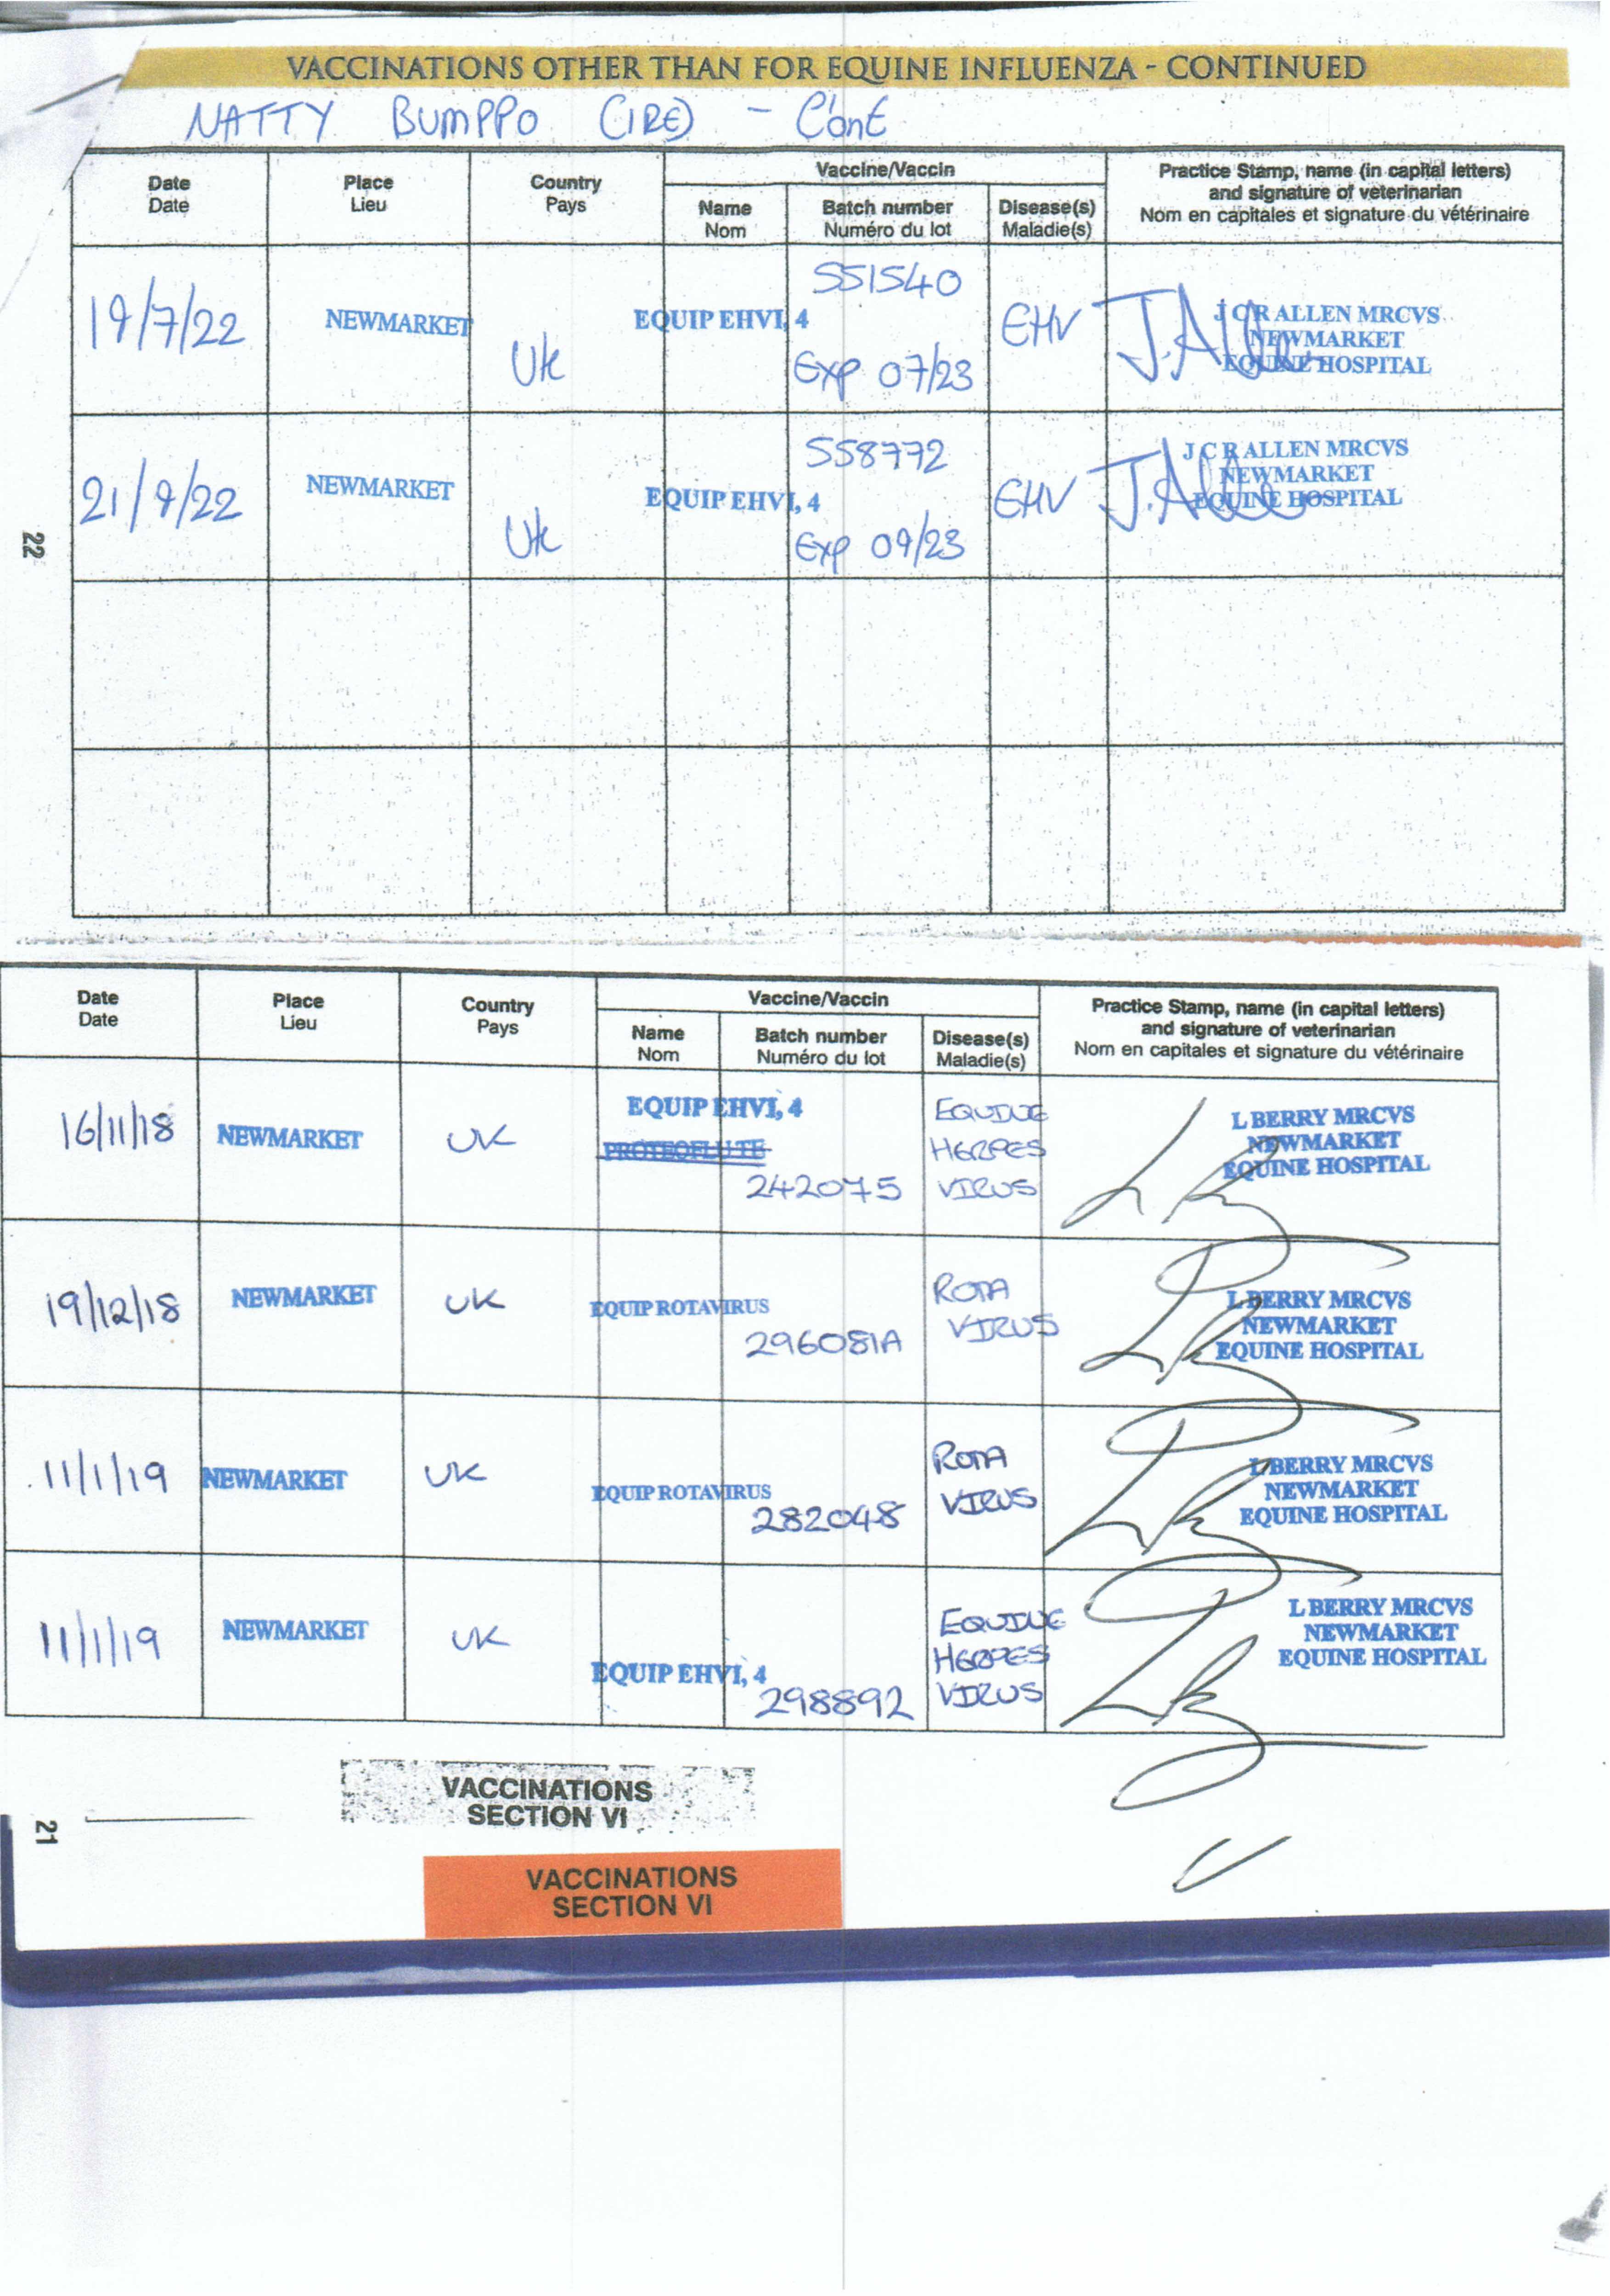 VACCINATIONS OTHER THAN FOR EQUINE INFLUENZA - CONTINUED
NATTY BUMPPO (IRE) - C'ont
Date Place Country Vaccine/Vaccin Practice Stamp, name (in capital letters)
Date Lieu Pays Name Batch number Disease(s) and signature of veterinarian
Nom Numéro du lot Maladie(s) Nom en capitales et signature du vétérinaire
551540
19/7/22 NEWMARKET Uk EQUIP EHVI, 4 EHV J.Allen J C R ALLEN MRCVS
NEWMARKET
Exp 07/23 EQUINE HOSPITAL
558772 J C R ALLEN MRCVS
21/9/22 NEWMARKET Uk EQUIP EHVI, 4 EHV J.Allen NEWMARKET
Exp 09/23 EQUINE HOSPITAL
22
Date Place Country Vaccine/Vaccin Practice Stamp, name (in capital letters)
Date Lieu Pays Name Batch number Disease(s) and signature of veterinarian
Nom Numéro du lot Maladie(s) Nom en capitales et signature du vétérinaire
16/11/18 NEWMARKET UK EQUIP EHVI, 4 EQUINE L BERRY MRCVS
PROTEQFLU TE HERPES NEWMARKET
242075 VIRUS EQUINE HOSPITAL
19/12/18 NEWMARKET UK EQUIP ROTAVIRUS ROTA L BERRY MRCVS
296081A VIRUS NEWMARKET
EQUINE HOSPITAL
11/1/19 NEWMARKET UK EQUIP ROTAVIRUS ROTA L BERRY MRCVS
282048 VIRUS NEWMARKET
EQUINE HOSPITAL
11/1/19 NEWMARKET UK EQUINE L BERRY MRCVS
HERPES NEWMARKET
EQUIP EHVI, 4 298892 VIRUS EQUINE HOSPITAL
VACCINATIONS
SECTION VI
21
VACCINATIONS
SECTION VI